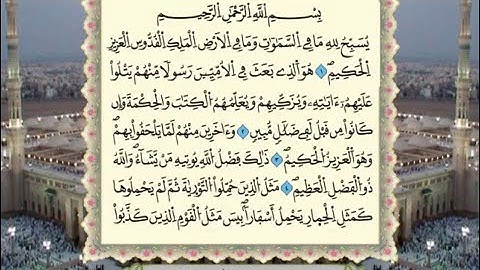 بِسْمِ اللَّهِ الرَّحْمَٰنِ الرَّحِيمِ
يُسَبِّحُ لِلهِ مَا فِي السَّمَٰوَٰتِ وَمَا فِي الْأَرْضِ الْمَلِكِ الْقُدُّوسِ الْعَزِيزِ
الْحَكِيمِ ١ هُوَ الَّذِي بَعَثَ فِي الْأُمِّيِّينَ رَسُولًا مِنْهُمْ يَتْلُوا
عَلَيْهِمْ ءَايَٰتِهِ وَيُزَكِّيهِمْ وَيُعَلِّمُهُمُ الْكِتَٰبَ وَالْحِكْمَةَ وَإِن
كَانُوا مِن قَبْلُ لَفِي ضَلَٰلٍ مُّبِينٍ ٢ وَءَاخَرِينَ مِنْهُمْ لَمَّا يَلْحَقُوا بِهِمْ
وَهُوَ الْعَزِيزُ الْحَكِيمُ ٣ ذَٰلِكَ فَضْلُ اللَّهِ يُوتِيهِ مَن يَّشَآءُ وَاللَّهُ
ذُو الْفَضْلِ الْعَظِيمِ ٤ مَثَلُ الَّذِينَ حُمِّلُوا التَّوْرَىٰةَ ثُمَّ لَمْ يَحْمِلُوهَا
كَمَثَلِ الْحِمَارِ يَحْمِلُ أَسْفَارًا بِيسَ مَثَلُ الْقَوْمِ الَّذِينَ كَذَّبُوا